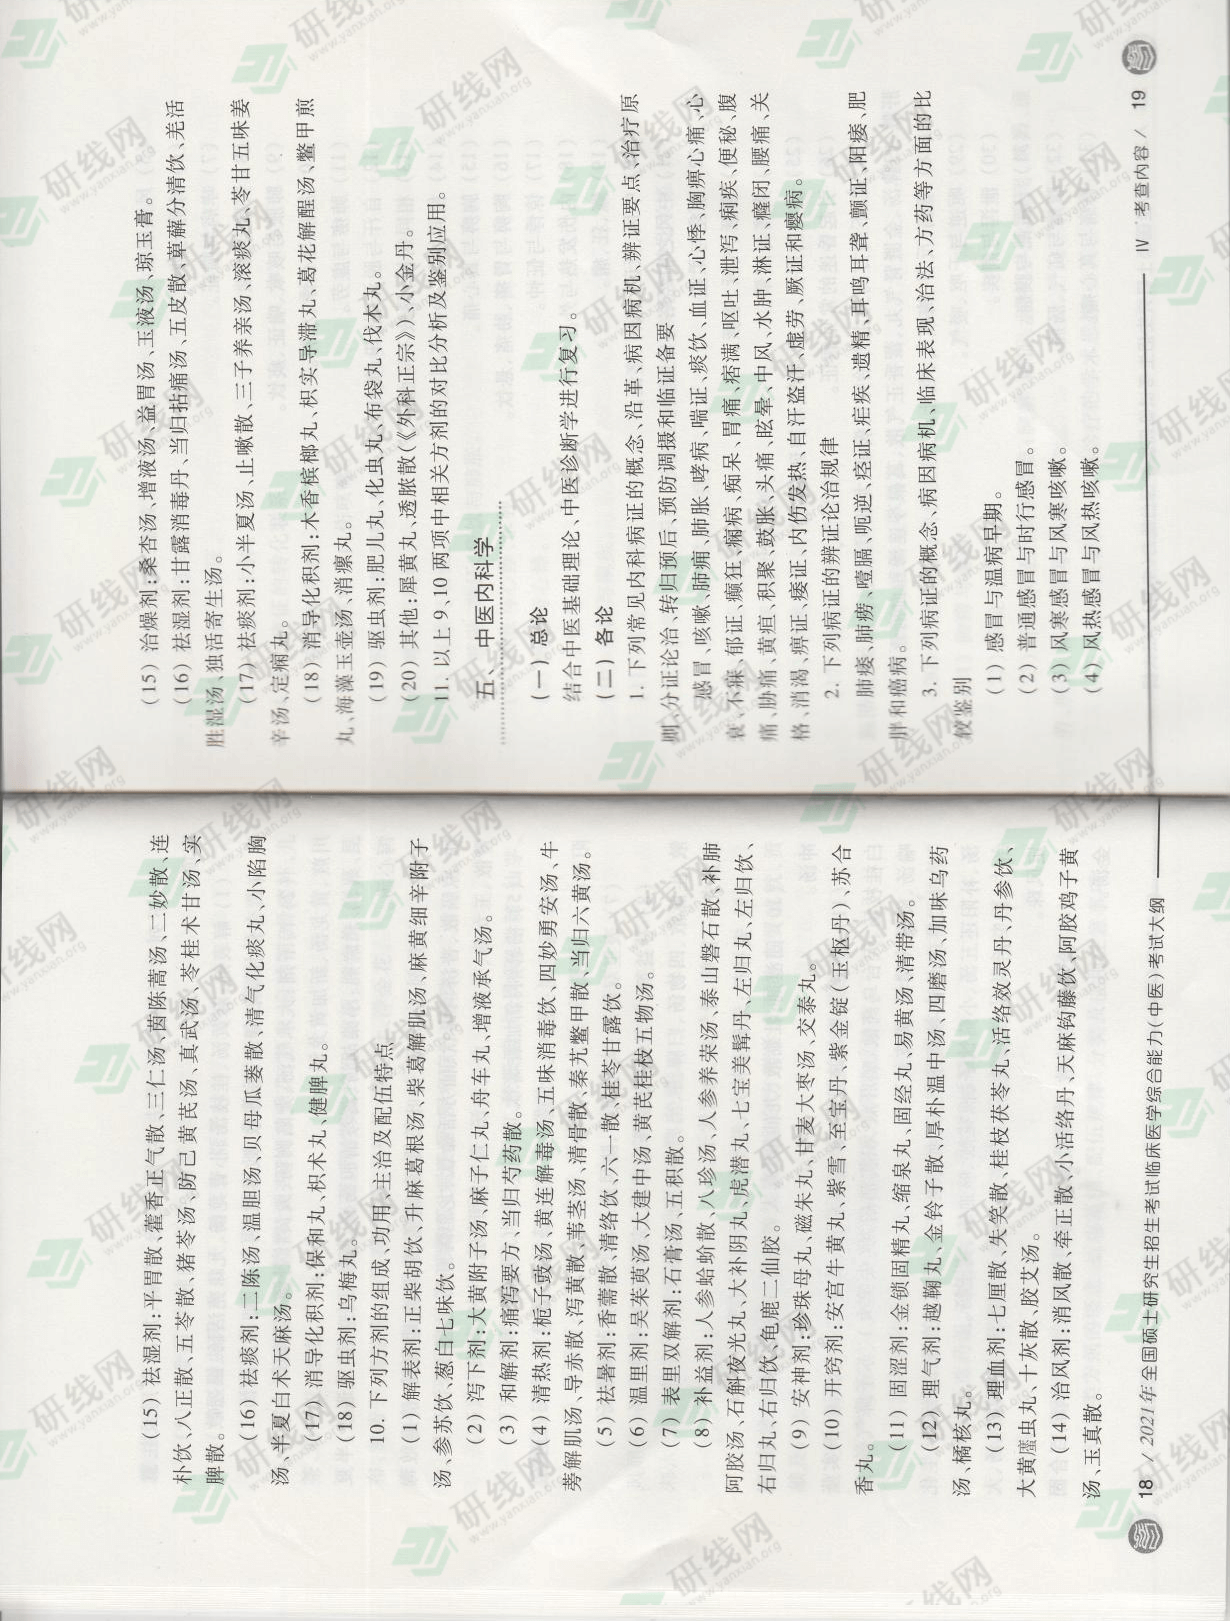 (15) 祛湿剂:平胃散、藿香正气散、三仁汤、茵陈蒿汤、二妙散、连
朴饮、八正散、五苓散、猪苓汤、防己黄芪汤、真武汤、苓桂术甘汤、实
脾散。
(16) 祛痰剂:二陈汤、温胆汤、贝母瓜蒌散、清气化痰丸、小陷胸
汤、半夏白术天麻汤。
(17) 消导化积剂:保和丸、枳术丸、健脾丸。
(18) 驱虫剂:乌梅丸。
10. 下列方剂的组成、功用、主治及配伍特点
(1) 解表剂:正柴胡饮、升麻葛根汤、柴葛解肌汤、麻黄细辛附子
汤、参苏饮、葱白七味饮。
(2) 泻下剂:大黄附子汤、麻子仁丸、舟车丸、增液承气汤。
(3) 和解剂:痛泻要方、当归芍药散。
(4) 清热剂:栀子豉汤、黄连解毒汤、五味消毒饮、四妙勇安汤、牛
蒡解肌汤、导赤散、泻黄散、苇茎汤、清骨散、秦艽鳖甲散、当归六黄汤。
(5) 祛暑剂:香薷散、清络饮、六一散、桂苓甘露饮。
(6) 温里剂:吴茱萸汤、大建中汤、黄芪桂枝五物汤。
(7) 表里双解剂:石膏汤、五积散。
(8) 补益剂:人参蛤蚧散、八珍汤、人参养荣汤、泰山磐石散、补肺
阿胶汤、石斛夜光丸、大补阴丸、虎潜丸、七宝美髯丹、左归丸、左归饮、
右归丸、右归饮、龟鹿二仙胶。
(9) 安神剂:珍珠母丸、磁朱丸、甘麦大枣汤、交泰丸。
(10) 开窍剂:安宫牛黄丸、紫雪、至宝丹、紫金锭(玉枢丹)、苏合
香丸。
(11) 固涩剂:金锁固精丸、缩泉丸、固经丸、易黄汤、清带汤。
(12) 理气剂:越鞠丸、金铃子散、厚朴温中汤、四磨汤、加味乌药
汤、橘核丸。
(13) 理血剂:七厘散、失笑散、桂枝茯苓丸、活络效灵丹、丹参饮、
大黄䗪虫丸、十灰散、胶艾汤。
(14) 治风剂:消风散、牵正散、小活络丹、天麻钩藤饮、阿胶鸡子黄
汤、玉真散。
18 / 2021年全国硕士研究生招生考试临床医学综合能力(中医)考试大纲
(15) 治燥剂:桑杏汤、增液汤、益胃汤、玉液汤、琼玉膏。
(16) 祛湿剂:甘露消毒丹、当归拈痛汤、五皮散、萆薢分清饮、羌活
胜湿汤、独活寄生汤。
(17) 祛痰剂:小半夏汤、止嗽散、三子养亲汤、滚痰丸、苓甘五味姜
辛汤、定痫丸。
(18) 消导化积剂:木香槟榔丸、枳实导滞丸、葛花解酲汤、鳖甲煎
丸、海藻玉壶汤、消瘰丸。
(19) 驱虫剂:肥儿丸、化虫丸、布袋丸、伐木丸。
(20) 其他:犀黄丸、透脓散(《外科正宗》)、小金丹。
11. 以上 9、10 两项中相关方剂的对比分析及鉴别应用。
五、中医内科学
(一) 总论
结合中医基础理论、中医诊断学进行复习。
(二) 各论
1. 下列常见内科病证的概念、沿革、病因病机、辨证要点、治疗原
则、分证论治、转归预后、预防调摄和临证备要
感冒、咳嗽、肺痈、肺胀、哮病、喘证、痰饮、血证、心悸、胸痹心痛、心
衰、不寐、郁证、癫狂、痫病、痴呆、胃痛、痞满、呕吐、泄泻、痢疾、便秘、腹
痛、胁痛、黄疸、积聚、鼓胀、头痛、眩晕、中风、水肿、淋证、癃闭、腰痛、关
格、消渴、痹证、痿证、内伤发热、自汗盗汗、虚劳、厥证和瘿病。
2. 下列病证的辨证论治规律
肺痿、肺痨、噎膈、呃逆、痉证、疟疾、遗精、耳鸣耳聋、颤证、阳痿、肥
胖和癌病。
3. 下列病证的概念、病因病机、临床表现、治法、方药等方面的比
较鉴别
(1) 感冒与温病早期。
(2) 普通感冒与时行感冒。
(3) 风寒感冒与风寒咳嗽。
(4) 风热感冒与风热咳嗽。
Ⅳ 考查内容 / 19
研线网
www.yanxian.org